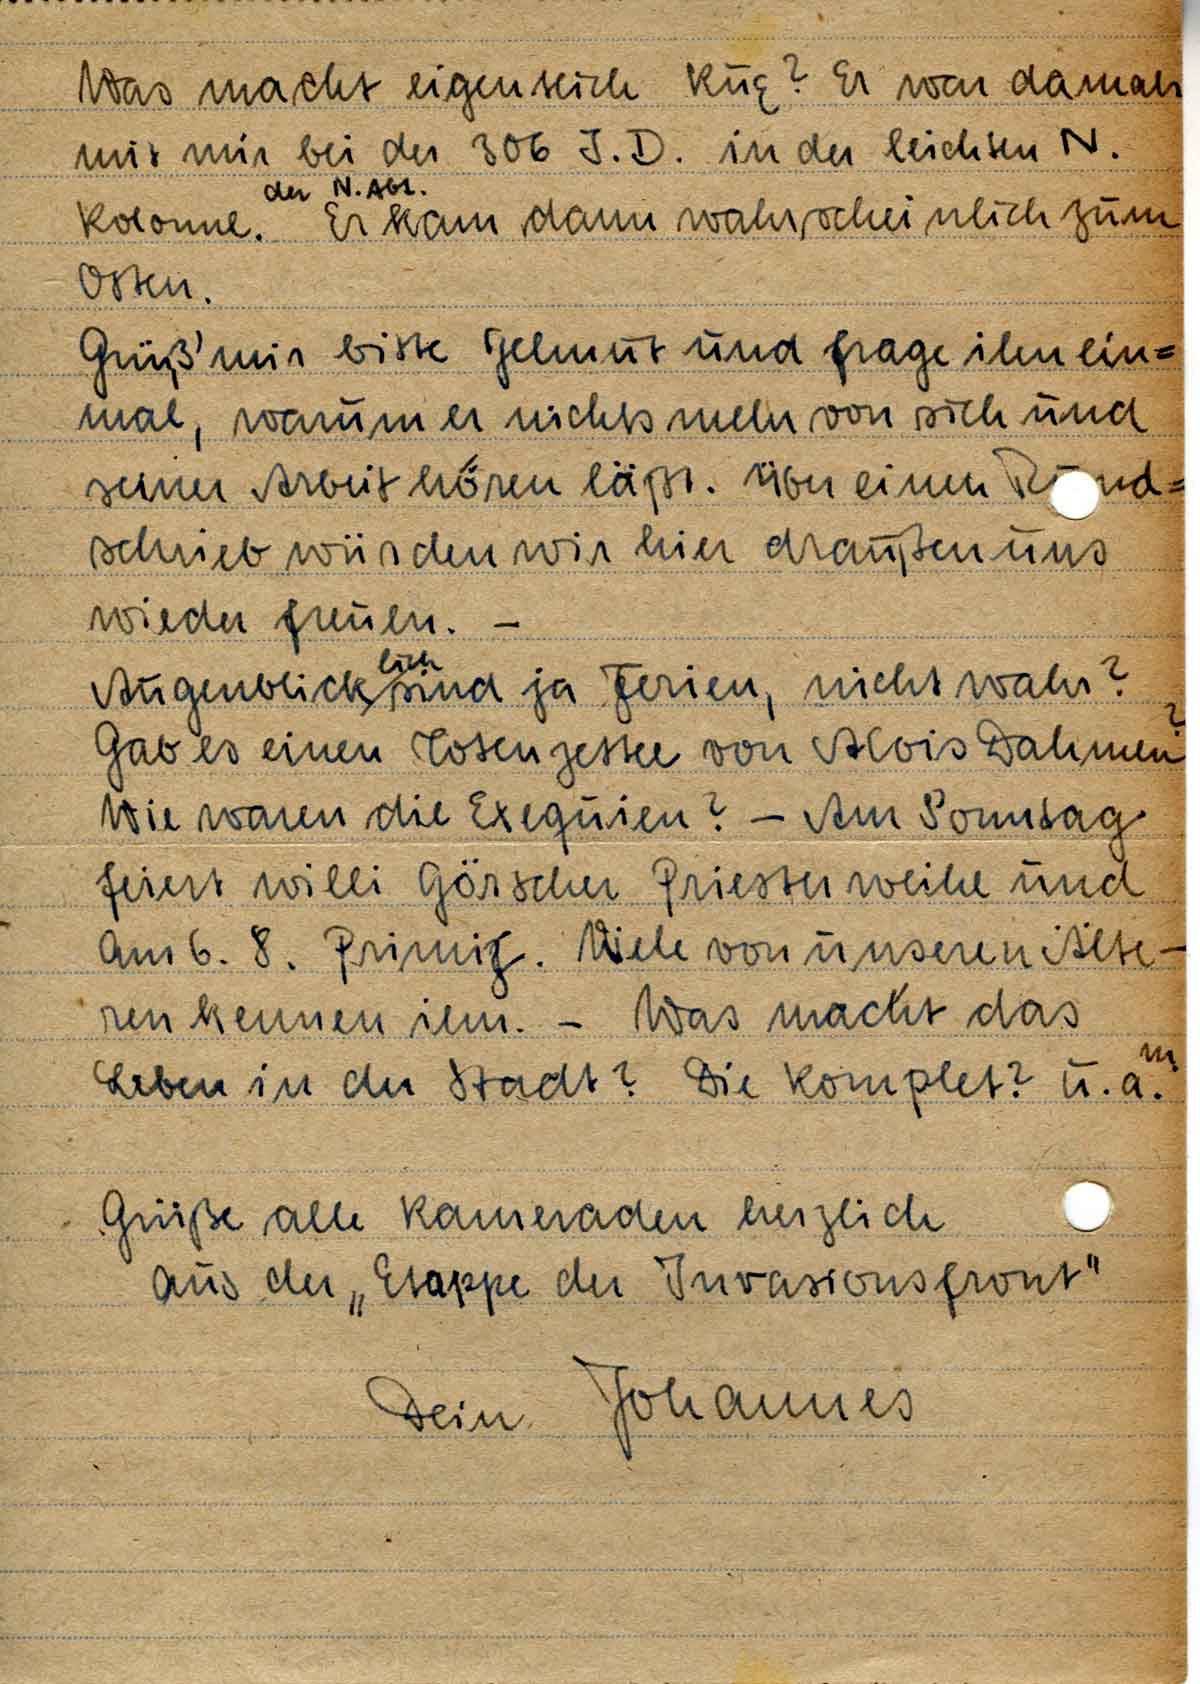 Was macht eigentlich Küq? Er war damals
mit mir bei der 306 I.D. in der leichten N.
der N. Abt.
Kolonne. Er kam dann wahrscheinlich zum
Osten.
Grüß' mir bitte Helmut und frage ihn ein=
mal, warum er nichts mehr von sich und
seiner Arbeit hören läßt. Über einen Rund=
schrieb würden wir hier draußen uns
wieder freuen. –
lich
Augenblick sind ja Ferien, nicht wahr?
Gab es einen Totenzettel von Alois Dahmen?
Wie waren die Exequien? – Am Sonntag
feiert Willi Görscher Priesterweihe und
am 6. 8. Primiz. Viele von unseren Älte-
ren kennen ihn. – Was macht das
Leben in der Stadt? Die Komplet? u.a.m
Grüße alle Kameraden herzlich
aus der „Etappe der Invasionsfront"
Dein Johannes